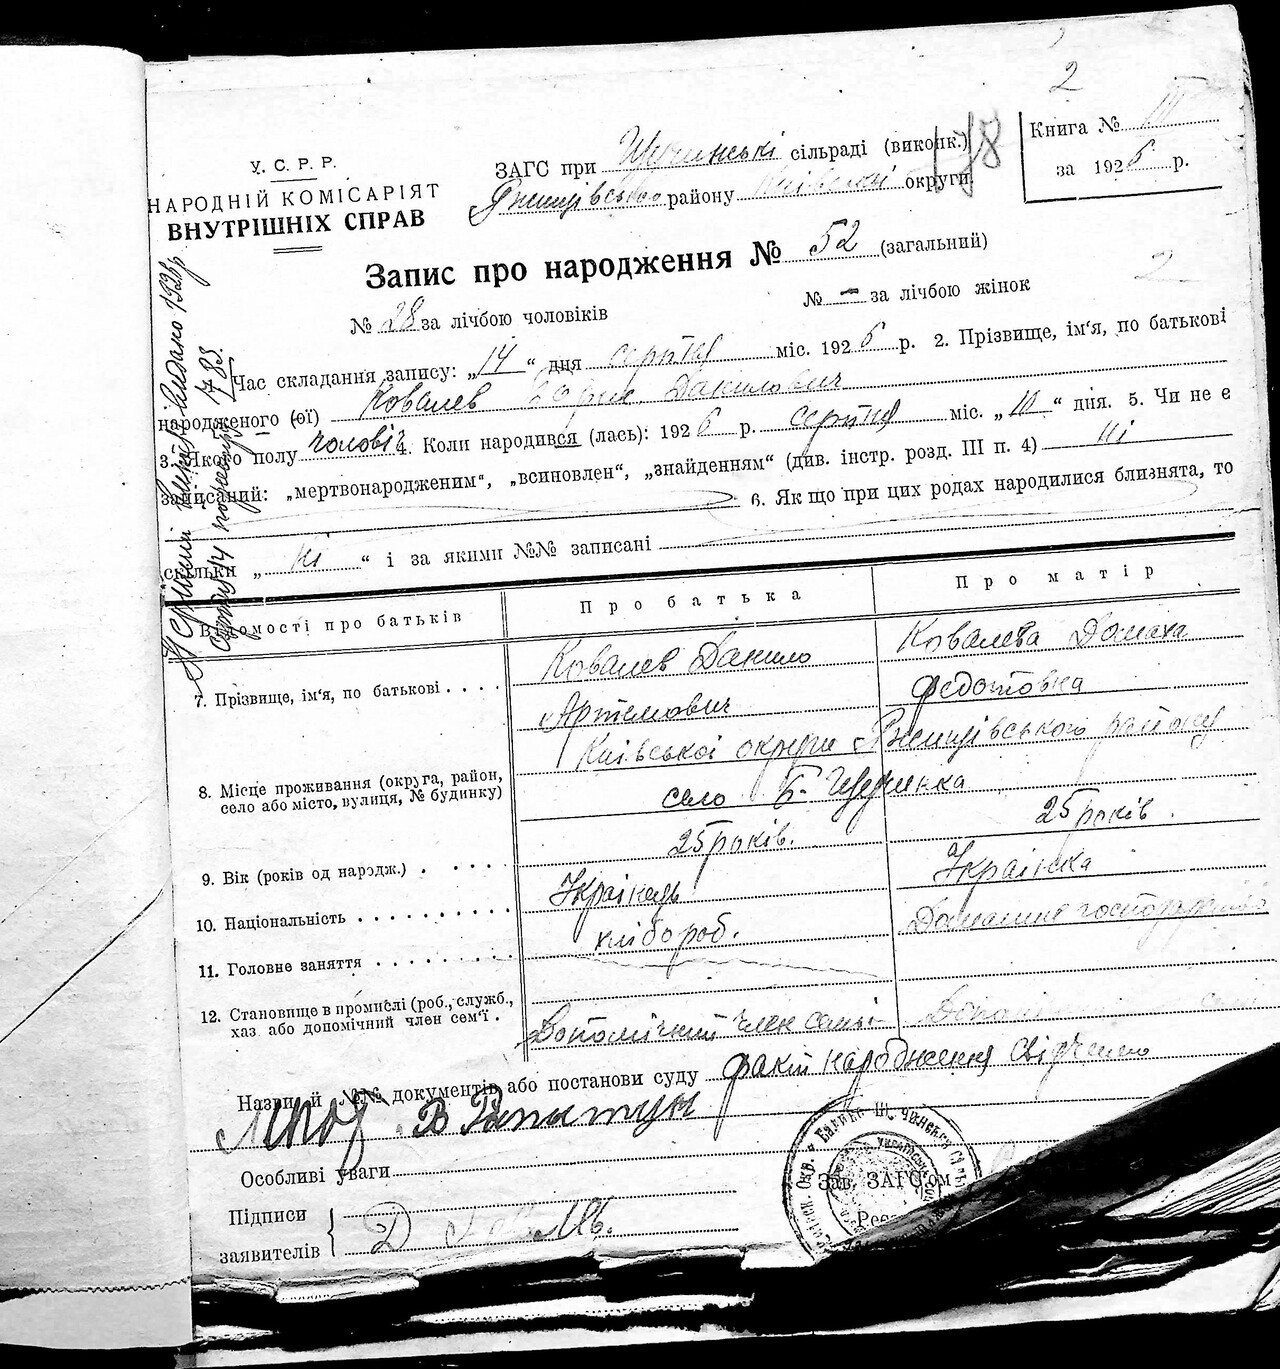 2
У. С. Р. Р.
НАРОДНІЙ КОМІСАРІЯТ
ВНУТРІШНІХ СПРАВ
ЗАГС при сільраді (виконк.)
району Київської округи
178
Книга № III
за 1926 р.
Запис про народження № 52 (загальний)
2
№ 28 за лічбою чоловіків № — за лічбою жінок
Час складання запису: „14“ дня серпня міс. 1926 р. 2. Прізвище, ім'я, по батькові
народженого (ої) Ковалев Данилович
3. Якого полу чоловіч 4. Коли народився (лась): 1926 р. серпня міс. „10“ дня. 5. Чи не є
записаний: „мертвонародженим“, „всиновлен“, „знайденням“ (див. інстр. розд. III п. 4) ні
6. Як що при цих родах народилися близнята, то
скільки „ні“ і за якими №№ записані
Відомості про батьків
Про батька
Про матір
7. Прізвище, ім'я, по батькові
Ковалев Данило
Артемович
Ковалева Домаха
Федотовна
8. Місце проживання (округа, район,
село або місто, вулиця, № будинку)
Київської округи Ржищівського району
село Б-
9. Вік (років од нарудж.)
25 років.
25 років.
10. Національність
Українець
Українка
11. Головне заняття
хлібороб.
Домашнє господарство
12. Становище в промислі (роб., служб.,
хаз. або допомічний член сем'ї.
Допомічний член семьі
Назви й №№ документів або постанови суду факт народження свідчено
Особливі уваги
Підписи
заявителів
Зав. ЗАГС'ом